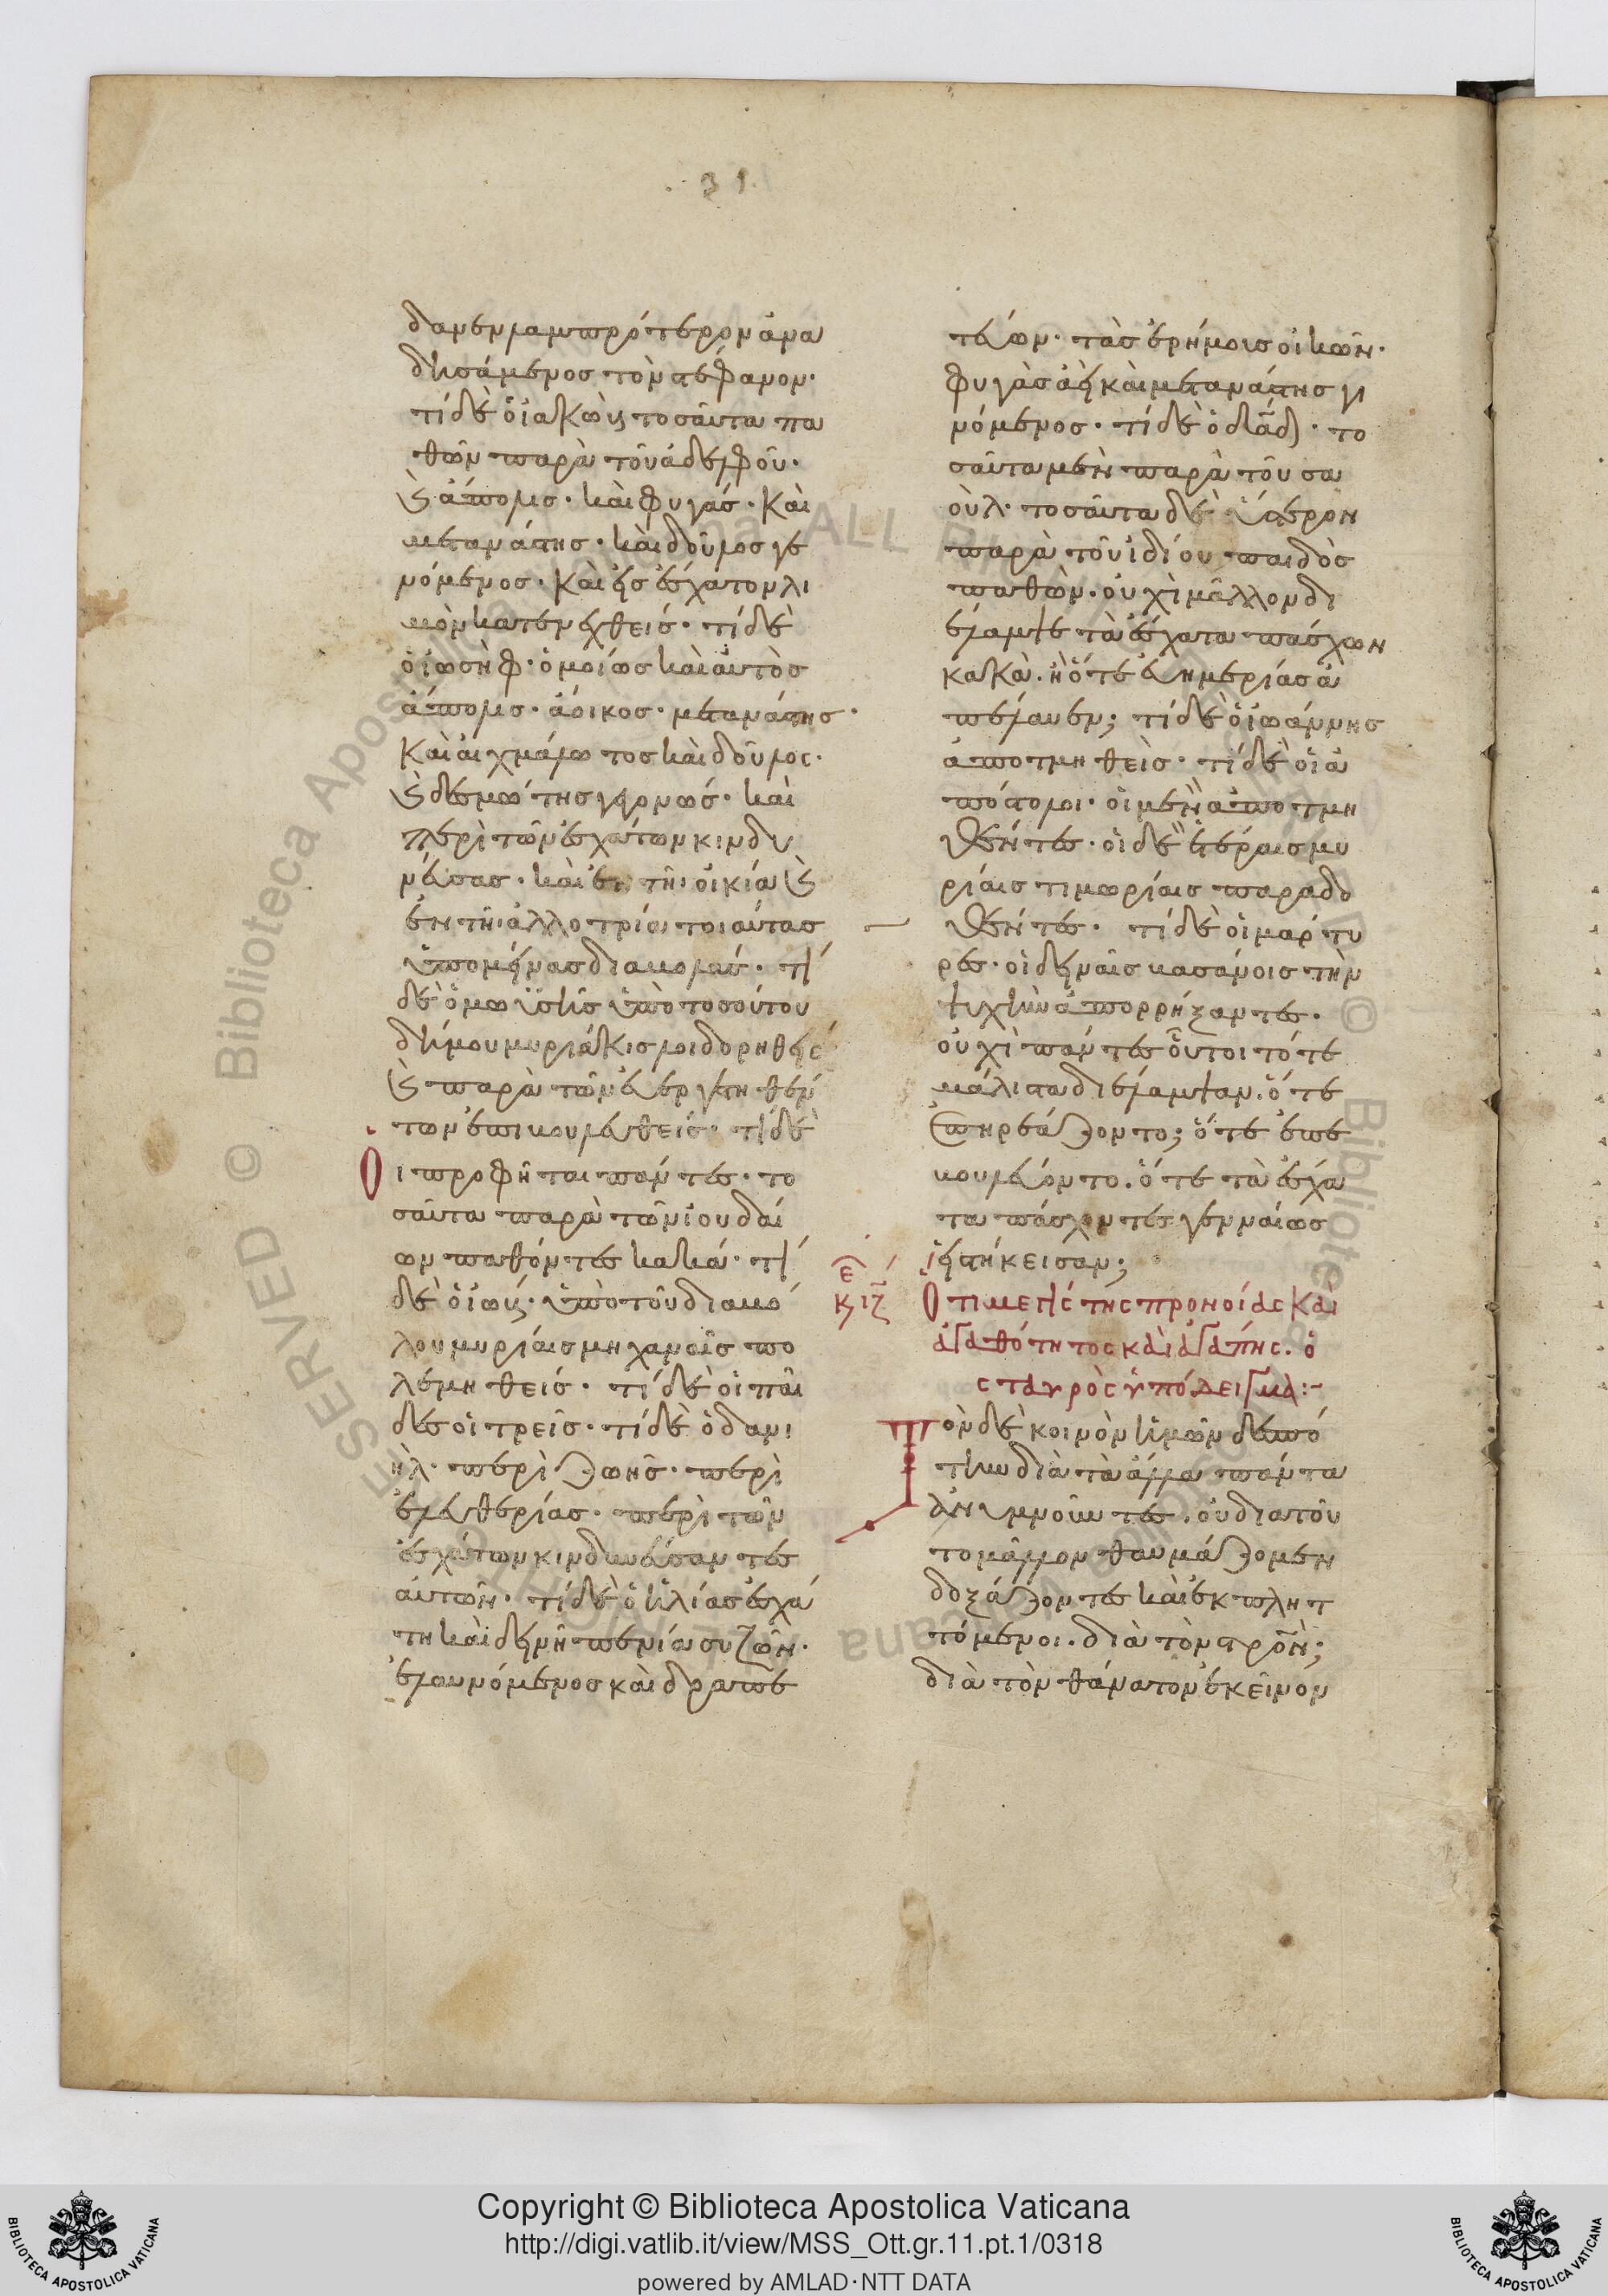 31
δα μὲν λαμπρότερον ἀνα
δησάμενος τὸν στέφανον·
τί δὲ ὁ ἰακὼβ τοσαῦτα πα
θὼν παρὰ τοῦ ἀδελφοῦ·
καὶ ἄπολις· καὶ φυγάς· καὶ
μετανάστης· καὶ δοῦλος γε
νόμενος· καὶ εἰς ἔσχατον λι
μὸν κατενεχθείς· τί δὲ
ὁ ἰωσὴφ· ὁμοίως καὶ αὐτὸς
ἄπολις· ἄοικος· μετανάστης·
καὶ αἰχμάλωτος καὶ δοῦλος·
καὶ δεσμώτης γεγονώς· καὶ
περὶ τῶν ἐσχάτων κινδυ
νεύσας· καὶ ἐν τῇ οἰκίᾳ καὶ
ἐν τῇ ἀλλοτρίᾳ τοιαύτας
ὑπομείνας διαβολάς· τί
δὲ ὁ μωϋσῆς ὑπὸ τοσούτου
δήμου μυριάκις λοιδορηθεὶς
καὶ παρὰ τῶν εὐεργετηθέν
των ἐπιβουλευθείς· τί δὲ
οἱ προφῆται πάντες· το
σαῦτα παρὰ τῶν ἰουδαί
ων παθόντες κακά· τί
δὲ ὁ ἰώβ· ὑπὸ τοῦ διαβό
λου μυρίαις μηχαναῖς πο
λεμηθείς· τί δὲ οἱ παῖ
δες οἱ τρεῖς· τί δὲ ὁ δανι
ήλ· περὶ ζωῆς· περὶ
ἐλευθερίας· περὶ τῶν
ἐσχάτων κινδυνεύσαντες
αὐτῶν· τί δὲ ὁ ἠλίας ἐσχά
τῃ καὶ δεινῇ πενίᾳ συζῶν·
ἐλαυνόμενος καὶ δραπε
τεύων· τὰς ἐρήμοις οἰκῶν·
φυγὰς ἀεὶ καὶ μετανάστης γι
νόμενος· τί δὲ ὁ δᾱδ· το
σαῦτα μὲν παρὰ τοῦ σα
οὺλ· τοσαῦτα δὲ ὕστερον
παρὰ τοῦ ἰδίου παιδὸς
παθών· οὐχὶ μᾶλλον δι
έλαμψε τὰ ἔσχατα πάσχων
κακὰ· ἢ ὅτε εὐημερίας ἀ
πέλαυεν; τί δὲ ὁ ἰωάννης
ἀποτμηθείς· τί δὲ οἱ ἀ
πόστολοι· οἱ μὲν ἀποτμη
θέντες· οἱ δὲ ἑτέραις μυ
ρίαις τιμωρίαις παραδο
θέντες· τί δὲ οἱ μάρτυ
ρες· οἱ δειναῖς βασάνοις τὴν
ψυχὴν ἀπορρήξαντες·
οὐχὶ πάντες οὗτοι τότε
μάλιστα διέλαμψαν· ὅτε
ἐπηρεάζοντο; ὅτε ἐπε
βουλεύοντο· ὅτε τὰ ἔσχα
τα πάσχοντες γενναίως
εἱστήκεισαν;
ε
κ ιζ
Ὅτι μετῆς τῆς προνοίας καὶ
ἀγαθότητος καὶ ἀγάπης· ὁ
σταυρὸς ὑπόδειγμα:-
Τὸν δὲ κοινὸν ἡμῶν δεσπό
την διὰ τὰ ἄλλα πάντα
ἀνυμνοῦντες· οὐ διὰ τοῦ
το μᾶλλον θαυμάζομεν
δοξάζοντες καὶ ἐκπλητ
τόμενοι· διὰ τὸν σρ̄ον̄;
διὰ τὸν θάνατον ἐκεῖνον
Copyright © Biblioteca Apostolica Vaticana
http://digi.vatlib.it/view/MSS_Ott.gr.11.pt.1/0318
powered by AMLAD·NTT DATA
BIBLIOTECA APOSTOLICA VATICANA
BIBLIOTECA APOSTOLICA VATICANA